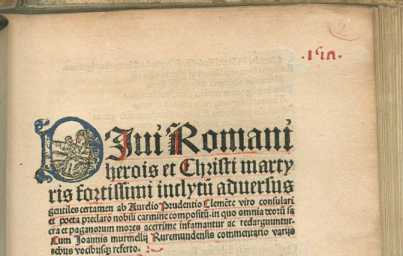 DIui Romani
herois et Christi marty
ris fortissimi inclytū aduersus
gentiles certamen ab Aurelio Prudentio Clemēte viro consulari
et poeta preclaro nobili carmine compositū. in quo omnia
cra et paganorum mores acerrime infamantur ac redarguuntur.
Cum Joannis murmellij Ruremundensis commentario varijs
vocibusq3 referto.